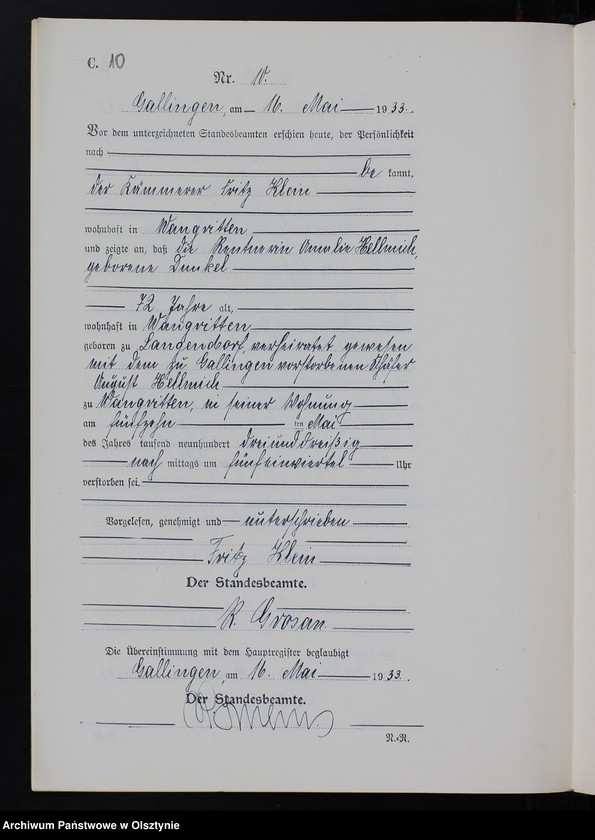 C. 10
Nr. 10.
Gallingen, am 16. Mai 1933.
Vor dem unterzeichneten Standesbeamten erschien heute, der Persönlichkeit
nach
be kannt,
der Kämmerer Fritz Klein
wohnhaft in Wangritten
und zeigte an, daß die Rentnerin Amalie Hellmich,
geborene Dunkel
72 Jahre alt,
wohnhaft in Wangritten
geboren zu Langendorf, verheiratet gewesen
mit dem zu Gallingen verstorbenen Schäfer
August Hellmich
zu Wangritten, in seiner Wohnung
am fünfzehn ten Mai
des Jahres tausend neunhundert dreiunddreißig
nach mittags um fünfeinviertel Uhr
verstorben sei.
Vorgelesen, genehmigt und unterschrieben
Fritz Klein
Der Standesbeamte.
R. Grosan.
Die Übereinstimmung mit dem Hauptregister beglaubigt
Gallingen, am 16. Mai 1933.
Der Standesbeamte.
N.-R.
Archiwum Państwowe w Olsztynie